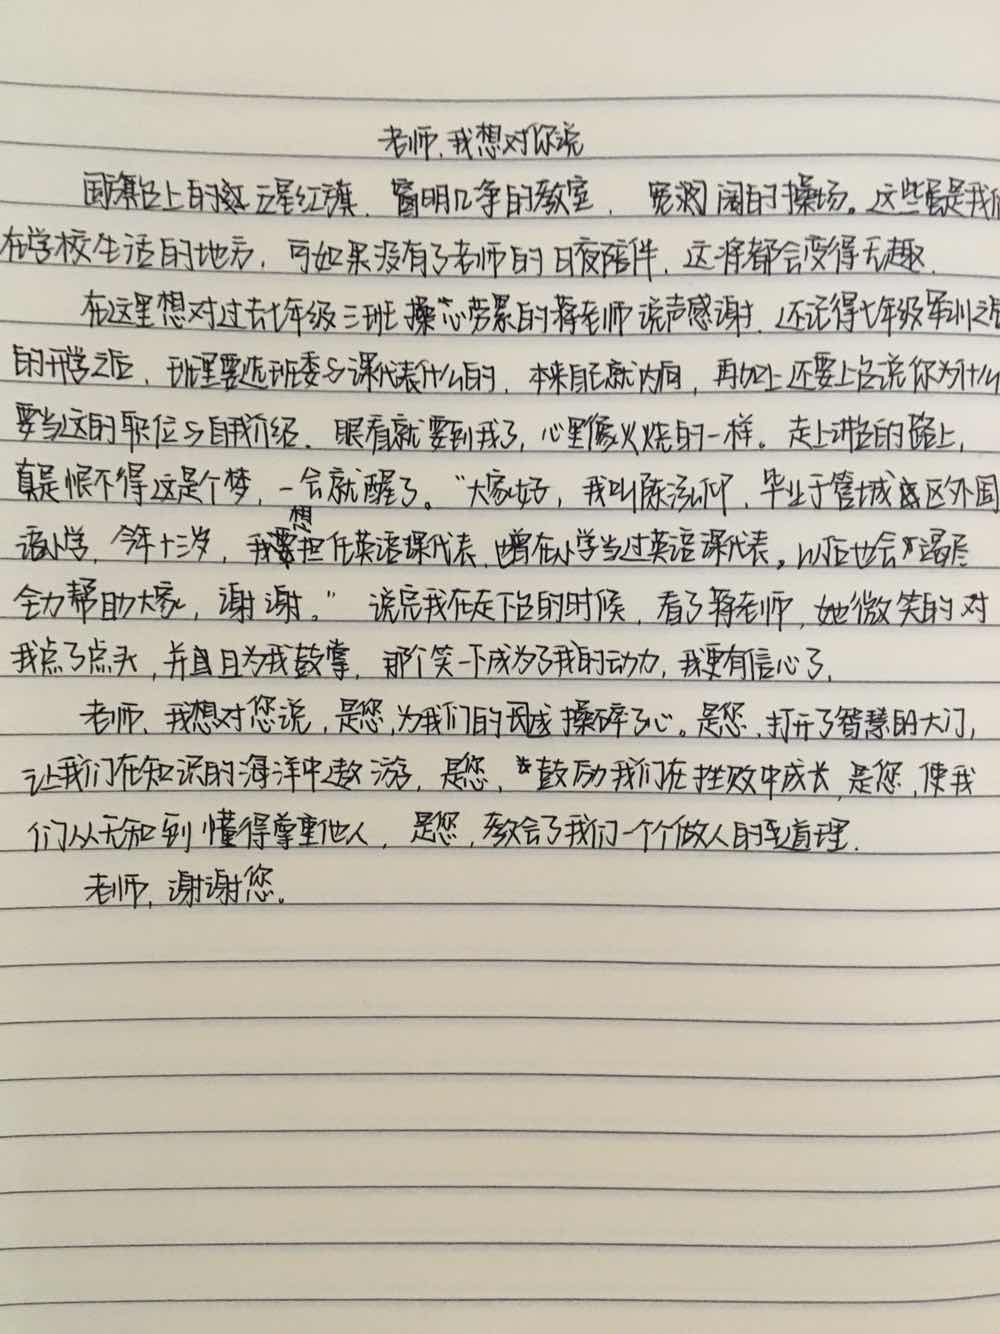 老师,我想对你说
国旗台上的五星红旗,窗明几净的教室,宽阔的操场。这些都是我们
在学校生活的地方,可如果没有了老师的日夜陪伴,这将都会变得无趣.
在这里想对过去七年级三班操心劳累的蒋老师说声感谢.还记得七年级军训之后
的开学之后,班里要选班委与课代表什么的,本来自己就内向,再加上还要上台说你为什么
要当这的职位与自我介绍.眼看就要到我了,心里像火烧的一样。走上讲台的路上,
真是恨不得这是个梦,一会就醒了。“大家好,我叫陈,毕业于管城区外国
语小学,今年十三岁,我想担任英语课代表,也曾在小学当过英语课代表。以后也会竭尽
全力帮助大家,谢谢。”说完我在走下台的时候,看了蒋老师,她微笑的对
我点了点头,并且为我鼓掌,那个笑一下成为了我的动力,我更有信心了,
老师,我想对您说,是您,为我们的成操碎了心。是您,打开了智慧的大门,
让我们在知识的海洋中遨游,是您,鼓励我们在挫败中成长,是您,使我
们从无知到懂得尊重他人,是您,教会了我们一个个做人的道理.
老师,谢谢您。